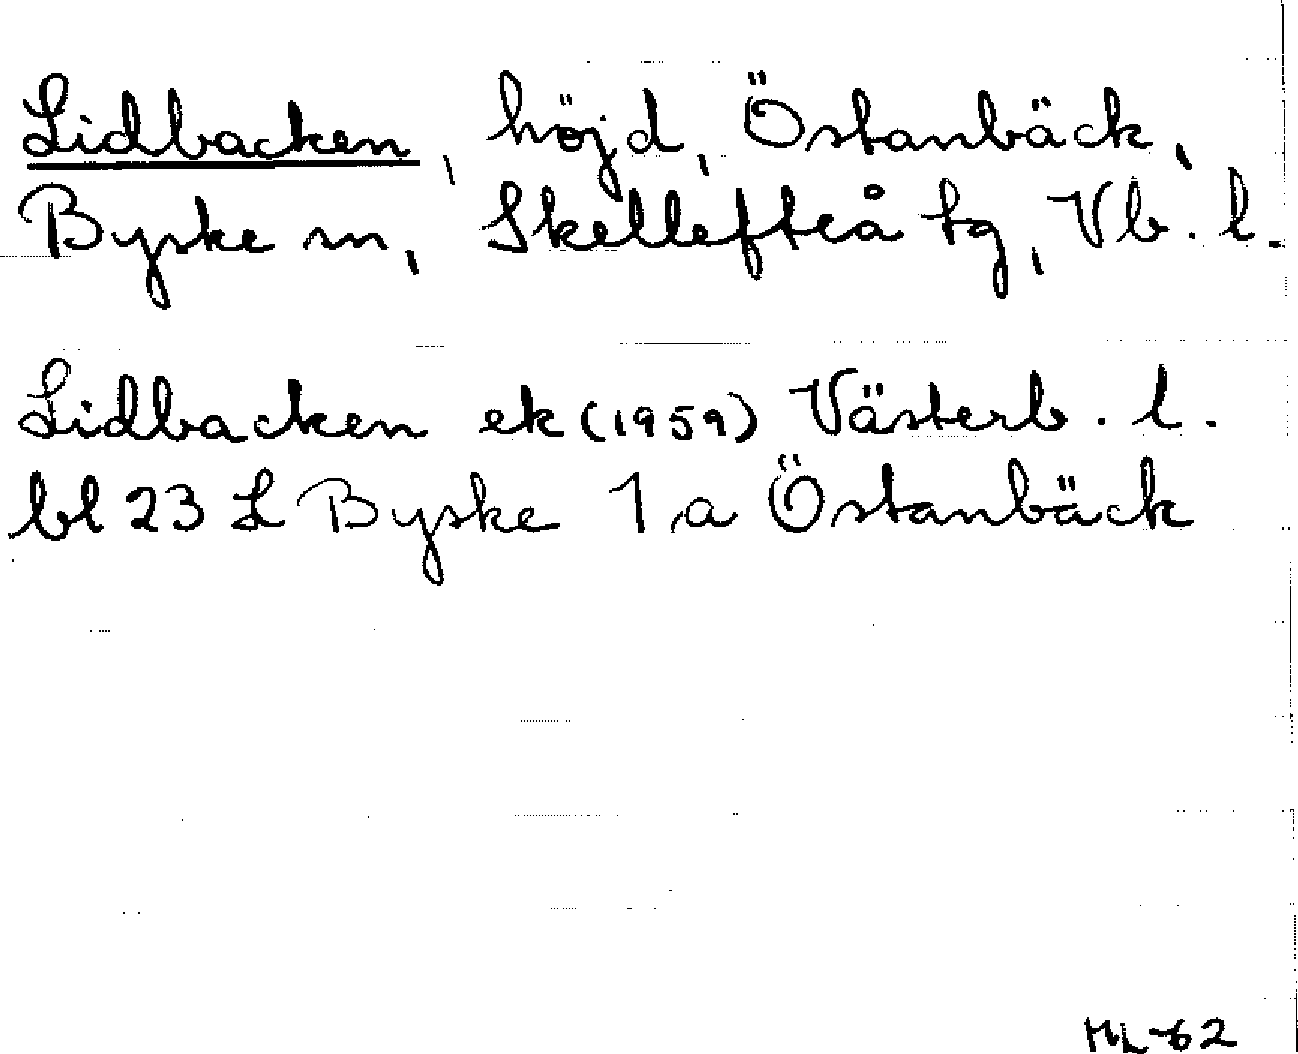 Lidbacken, höjd, Östanbäck,
Byske sn, Skellefteå tg, Vb. l.
Lidbacken ek (1959) Västerb. l.
bl 23 L Byske 1 a Östanbäck
ML-62